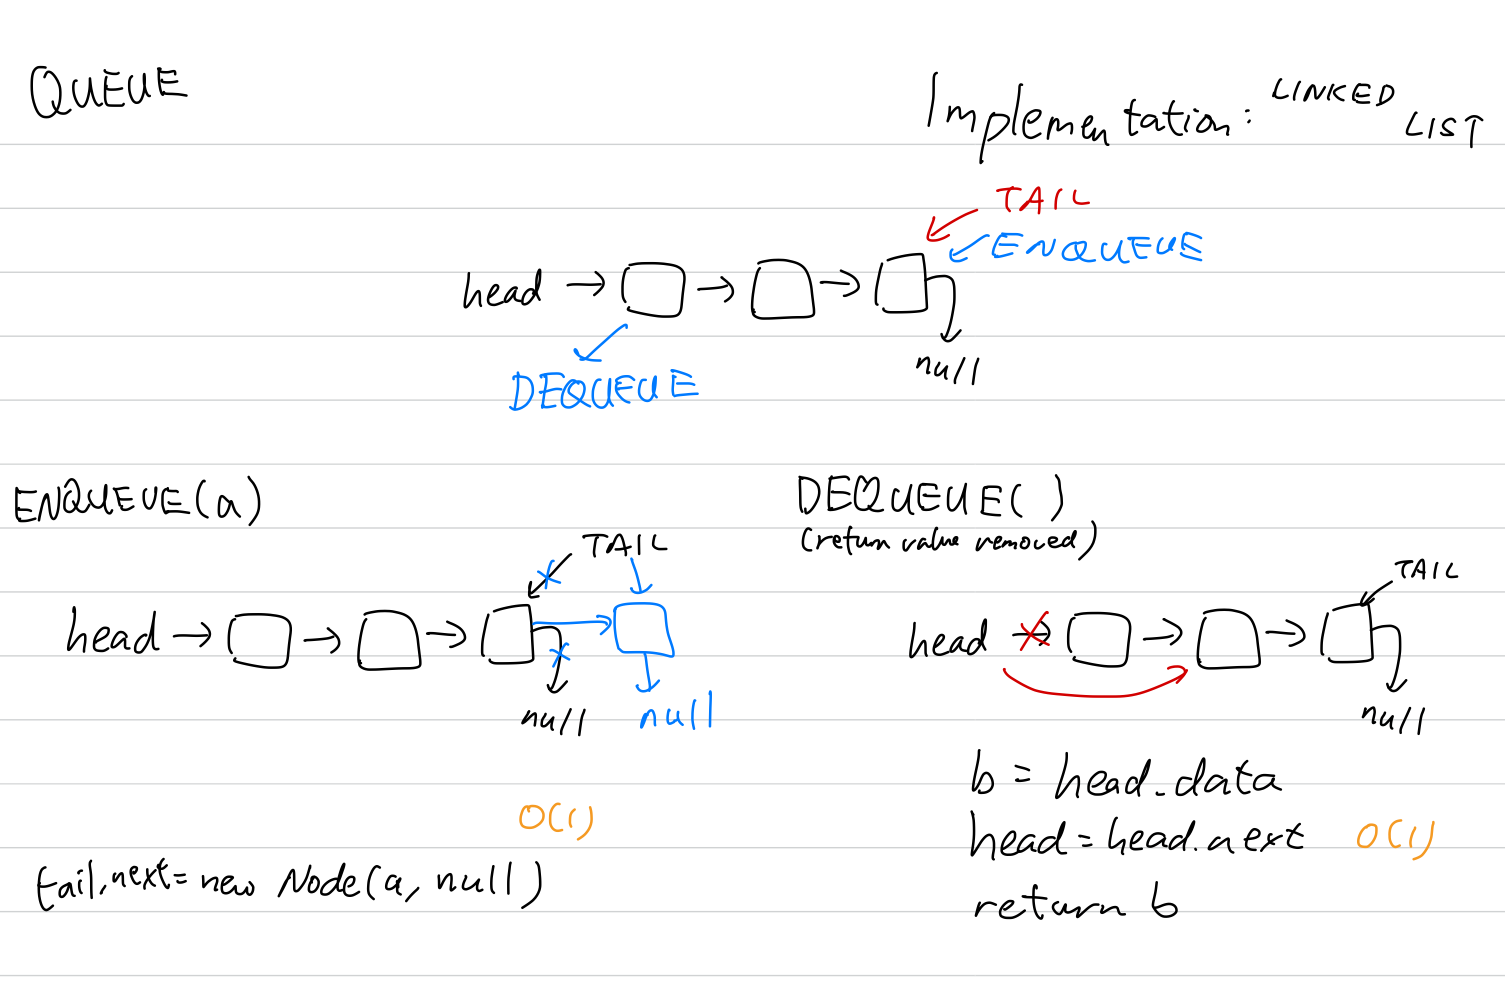 QUEUE
Implementation: LINKED LIST
TAIL
ENQUEUE
head
null
DEQUEUE
ENQUEUE(a)
TAIL
head
null
null
O(1)
tail.next = new Node(a, null)
DEQUEUE( )
(return value removed)
TAIL
head
null
b = head.data
head = head.next O(1)
return b